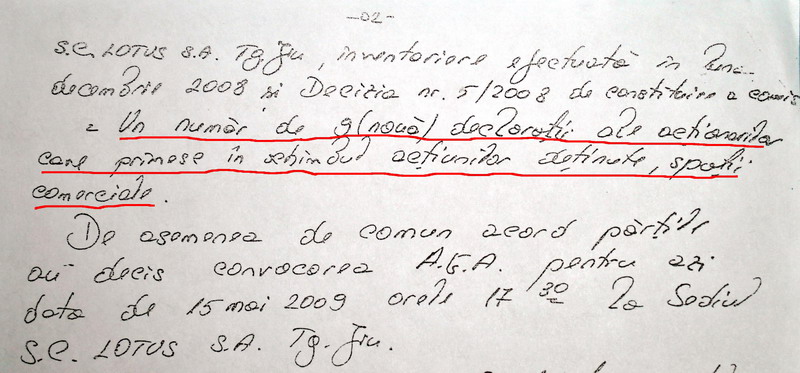 -02-
S.C. LOTUS S.A. Tg. Jiu, inventariere efectuată în luna
decembrie 2008 și Decizia nr. 5/2008 de constituire a comis
- Un număr de 9 (nouă) declarații ale acționarilor
care primesc în schimbul acțiunilor deținute, spații
comerciale.
De asemenea de comun acord părțile
au decis convocarea A.G.A. pentru azi
data de 15 mai 2009 orele 17 30 la Sediul
S.C. LOTUS S.A. Tg. Jiu.